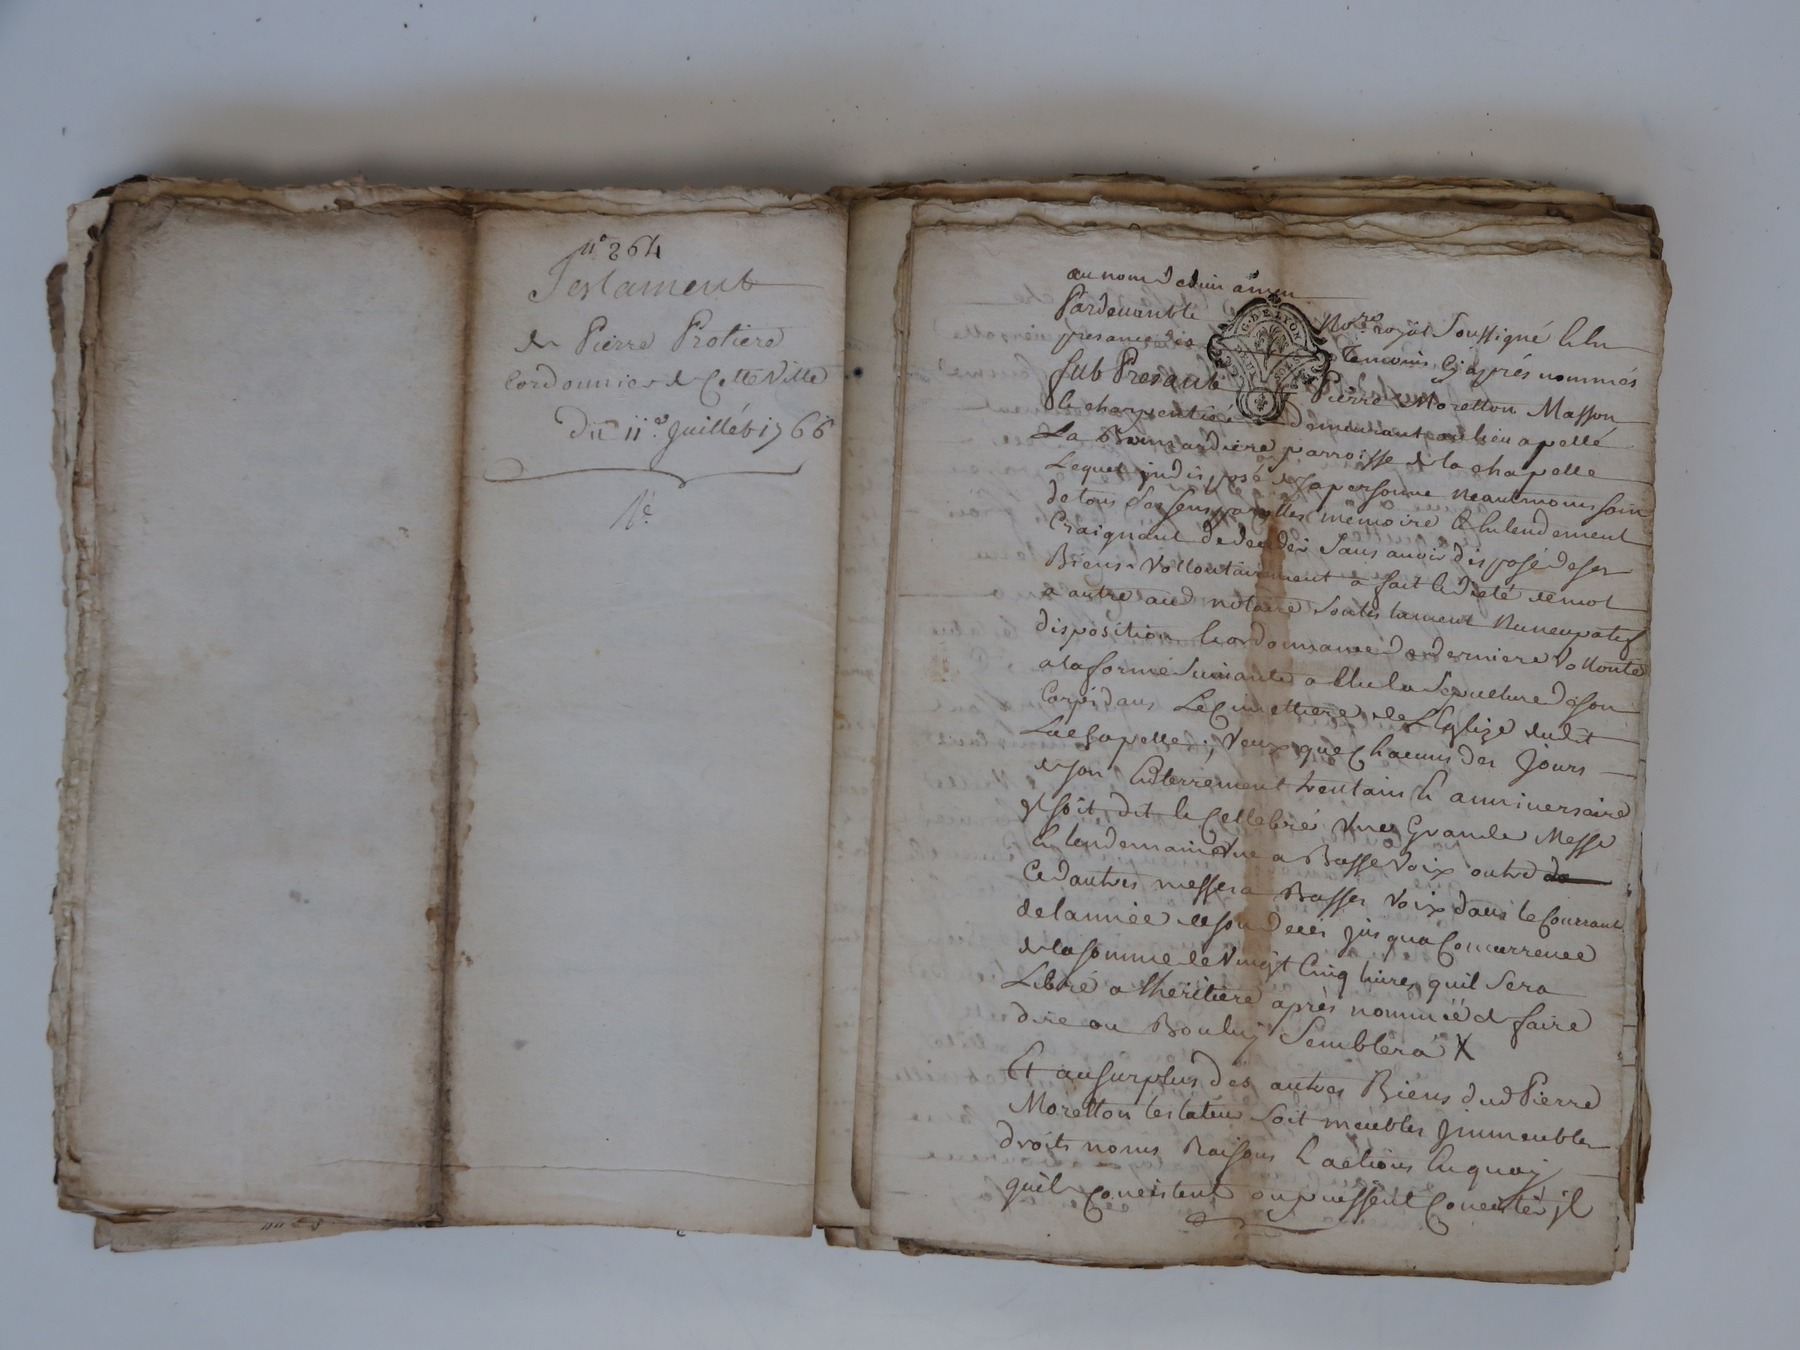 n° 264
Testament
de Pierre Protiere
Cordonnier de Cette Ville
Du 11e. Juillét 1766
Ne.
au nom de dieu amen
Pardevant le Nore. royal Soussigné & En
presance des temoins Cy après nommés
fut Presant Pierre Moretton Masson
& charpentier demeurant au lieu apellé
La Bernardiere parroisse de la chapelle
Lequel jndisposé de sa personne neantmoins sain
de tous Ses sens parolles mémoire & Entendement
Craignant de deceder Sans avoir disposé de ses
Biens Vollontairement a fait & dicté de mot
a autre aud notaire Son testament Nuncupatif
disposition & ordonnance de derniere Vollonté
a la forme Suivante a Elu la Sepulture de son
Corps dans Le Cimettiere de L'Eglize dudit
La chapelle, Veux que Chacuns des Jours
de son Enterrement trentain & anniversaire
jl soit dit & Cellebré Une Grande Messe
& lendemain Une a Basse Voix outre de
Ce d'autres messes a Basses Voix dans le Courrant
de l'année de son deces jusqua Concurrence
de la somme de Vingt Cinq livres quil Sera
Libre a lheritiere après nommée de faire
dire ou Bon luy Semblera X
Et au surplus des autres Biens dud Pierre
Moretton testateur Soit meubles Jmmeubles
droits noms Raisons & actions En quoy
quils Concistent ou puissent Concister jl
G. DE LYON